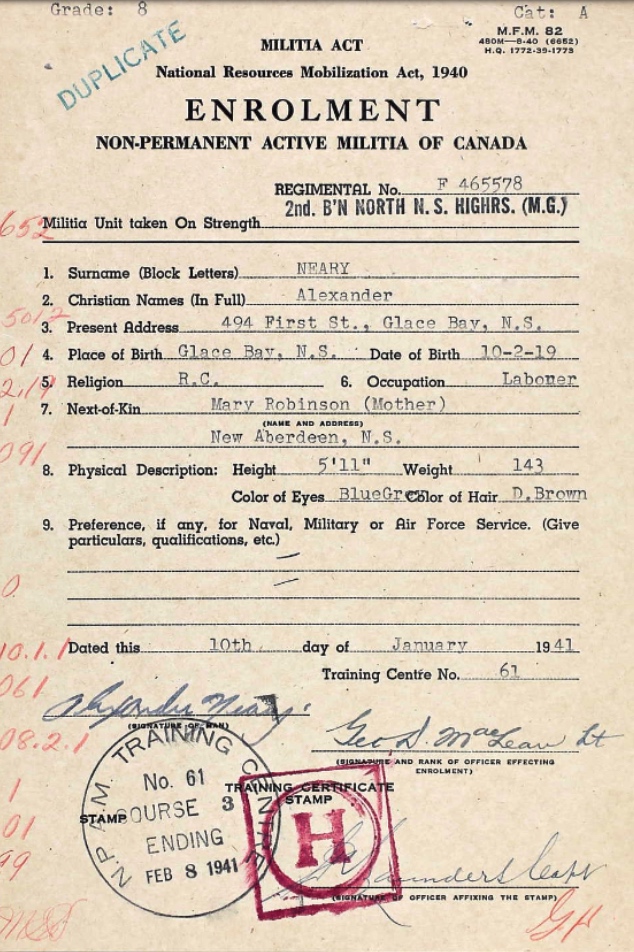 Grade: 8
Cat: A
M.F.M. 82
480M—8-40 (6652)
H.Q. 1772-39-1773
DUPLICATE
MILITIA ACT
National Resources Mobilization Act, 1940
ENROLMENT
NON-PERMANENT ACTIVE MILITIA OF CANADA
REGIMENTAL No. F 465578
2nd. B'N NORTH N. S. HIGHRS. (M.G.)
652
Militia Unit taken On Strength
1. Surname (Block Letters) NEARY
2. Christian Names (In Full) Alexander
5012
3. Present Address 494 First St., Glace Bay, N.S.
01
4. Place of Birth Glace Bay, N.S. Date of Birth 10-2-19
2,19
5. Religion R.C. 6. Occupation Laborer
1
7. Next-of-Kin Mary Robinson (Mother)
(NAME AND ADDRESS)
091
New Aberdeen, N.S.
8. Physical Description: Height 5'11" Weight 143
Color of Eyes BlueGre Color of Hair D.Brown
9. Preference, if any, for Naval, Military or Air Force Service. (Give
particulars, qualifications, etc.)
0.
10.1.1
Dated this 10th. day of January 1941
Training Centre No. 61
061
Alexander Neary
(SIGNATURE OF MAN)
08.2.1
Geo D. MacLean Lt
(SIGNATURE AND RANK OF OFFICER EFFECTING
ENROLMENT)
N.P.A.M. TRAINING CENTRE
No. 61
COURSE 3
ENDING
FEB 8 1941
STAMP
TRAINING CERTIFICATE
STAMP
H
1
01
99
Saunders Capt
(SIGNATURE OF OFFICER AFFIXING THE STAMP)